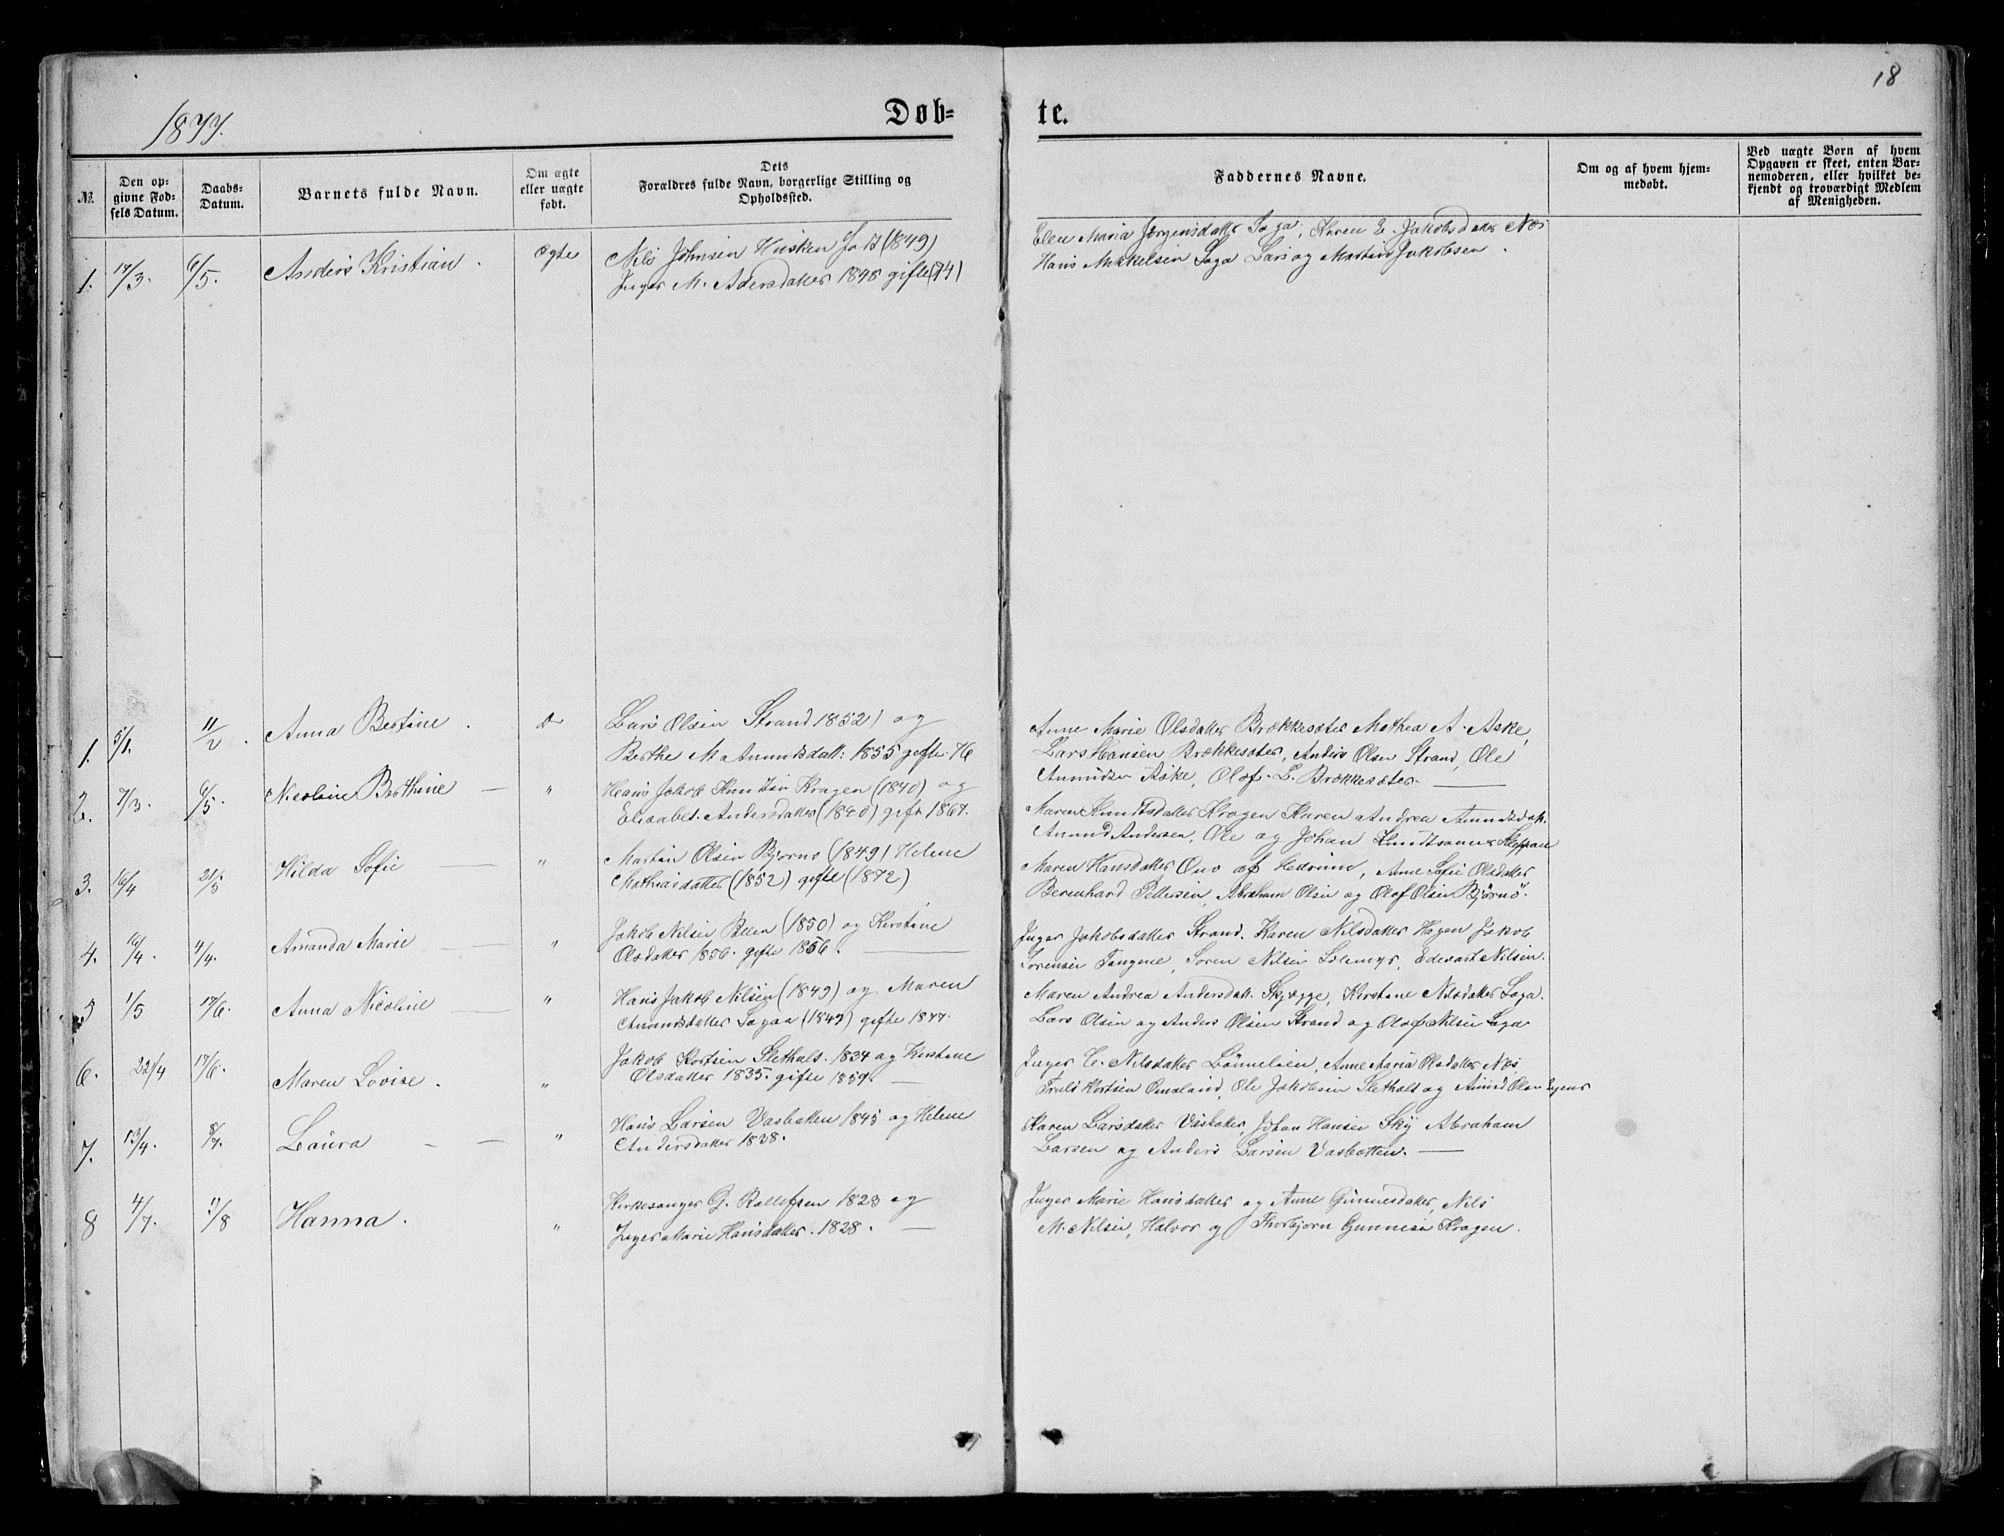 18
1877.
Døb-
te.
№
Den op-
givne Fød-
sels Datum.
Daabs-
Datum.
Barnets fulde Navn.
Om ægte
eller uægte
født.
Dets
Forældres fulde Navn, borgerlige Stilling og
Opholdssted.
Faddernes Navne.
Om og af hvem hjem-
medøbt.
Ved uægte Børn af hvem
Opgaven er skeet, enten Bar-
nemoderen, eller hvilket be-
kjendt og troværdigt Medlem
af Menigheden.
1. /3. 6/5. Anders Kristian. Ægte
Nils Johnsen (1849)
Inger M. Adersdatter 1848 gifte (74)
Elen Maria Jørgensdatter Saga, Karen E. Jakobsdatter Næs
Hans Mikkelsen Saga Lars og Martin Jakobsen.
1. 5/1. 11/2. Anna Bertine. Do
Lars Olsen Strand 1852) og
Berthe M Amundsdatt: 1855 gifte 76
Anne Marie Olsdatter Brækkesæter Mathea A. Aske,
Lars Hansen Brækkesæter, Anders Olsen Strand, Ole
Amundsen Aske, Olof. L. Brækkesæter.
2. 7/3. 6/5. Nicoline Berthine — "
Hans Jakob Knutsen Kragen (1840) og
Elisabet. Andersdatter (1840) gift 1867.
Maren Knudtsdatter Kragen Karen Andrea Amundsdatt.
Amund Andersen, Ole og Johan Knudtsønner
3. 16/4 21/5 Hilda Sofie — "
Martin Olsen Bjørnø (1849) Helene
Mathiasdatter (1852) gifte (1872)
Maren Hansdatter af Hedrum, Anne Sofie Olsdatter
Berenhard Pettersen, Abraham Olsen og Olof Olsen Bjørnø.
4. 16/4. 4/4. Amanda Marie — "
Jakob Nilsen (1850) og Kirstine
Olsdatter 1856. gifte 1866.
Inger Jakobsdatter Strand. Karen Nilsdatter Hagen Jakob
Sørensen Tangene, Søren Nilsen Solemyr, Edevart Nilsen.
5 1/5 17/6. Anna Nicoline — "
Hans Jakob Nilsen (1849) og Maren
Amundsdatter Sagaa (1849) gifte 1877.
Maren Andrea Andersdatt. Skjægge, Kirstine Nilsdatter Saga.
Lars Olsen og Anders Olsen Strand og Olof Nilsen Saga
6. 22/4 17/6. Maren Lovise. "
Jakob Kortsen Sletholt 1834 og Kirstine
Olsdatter 1835. gifte 1859. —
Inger C. Nilsdatter, Anne Maria Olsdatter Næs,
Truls Kortsen Omeland, Ole Jakobsen Sletholt og Amund Olsen
7. 13/4. 8/7. Laura — — "
Hans Larsen Vasbotten 1845 og Helene
Andersdatter 1838.
Karen Larsdatter, Johan Hansen Sky Abraham
Larsen og Anders Larsen Vasbotten. —
8 4/7. /8 Hanna. "
Kirkesanger G. Rollefsen 1823 og
Inger Marie Hansdatter. 1828. —
Inger Marie Hansdatter og Anne Gunnesdatter, Nils
M. Nilsen, Halvor og Thorbjørn Gunnesen Kragen.